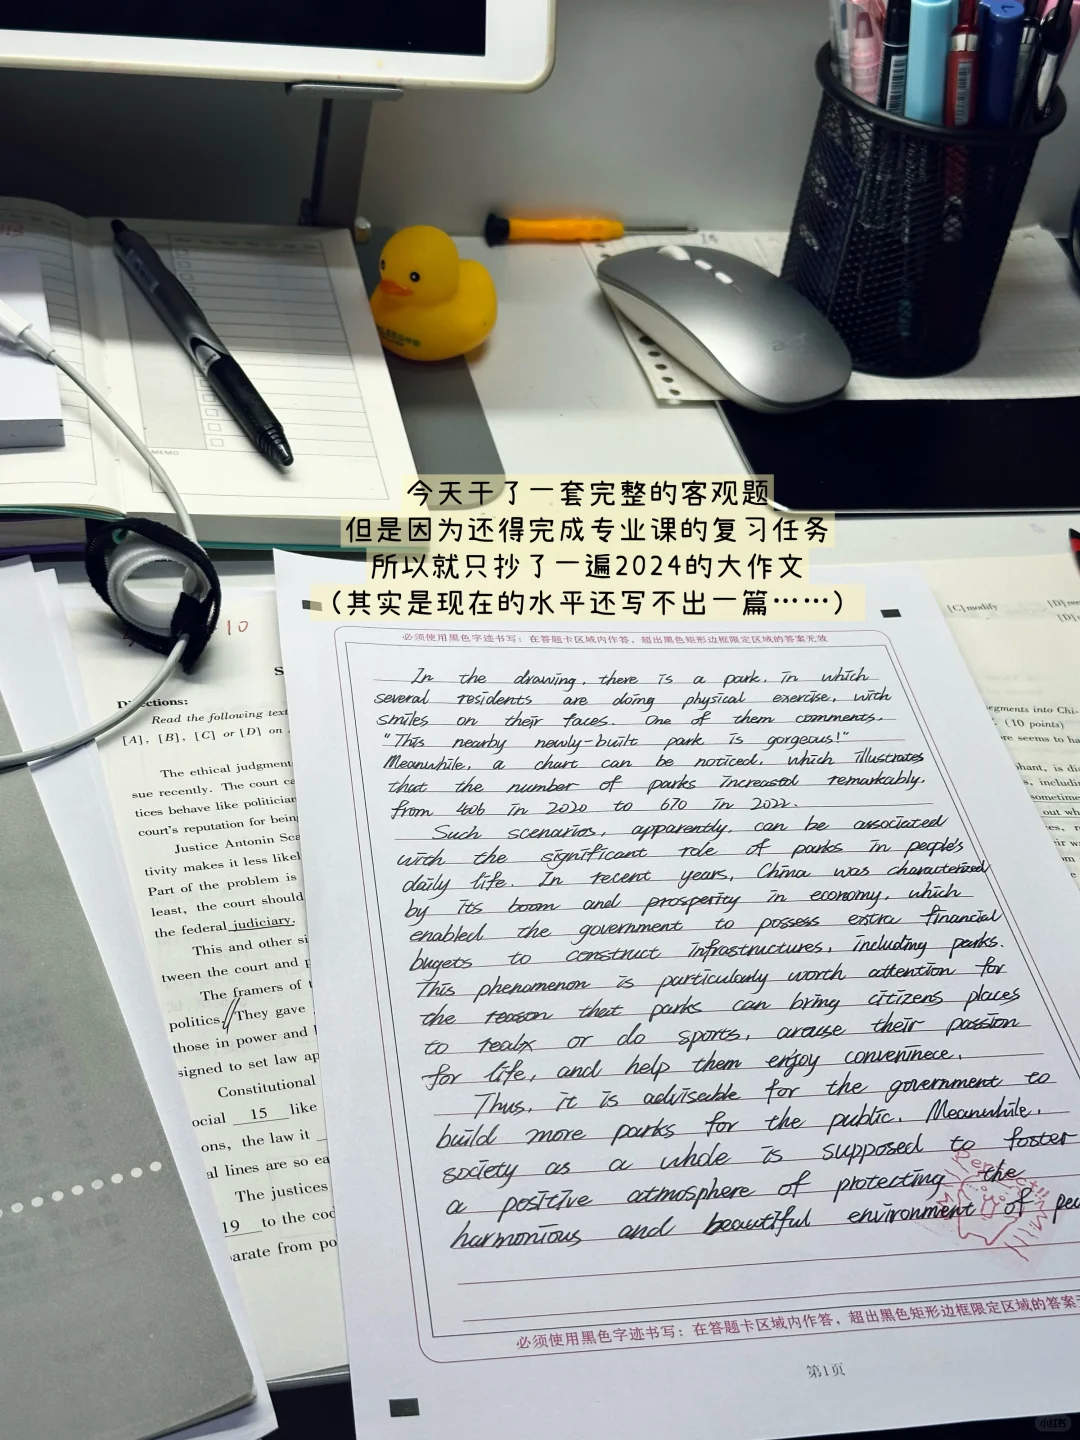 MEMO
acer
今天干了一套完整的客观题
但是因为还得完成专业课的复习任务
所以就只抄了一遍2024的大作文
（其实是现在的水平还写不出一篇……）
10
[C] modify
Directions:
Read the following text
[A], [B], [C] or [D] on
The ethical judgment
sue recently. The court
tices behave like politician
court's reputation for being
Justice Antonin
tivity makes it less likel
Part of the problem is
least, the court should
the federal judiciary.
This and other
tween the court and
The framers of
politics. They gave
those in power and
signed to set law
Constitutional
ocial 15 like
ons, the law it
al lines are so
The justices
19 to the
arate from
egments into Chi-
(10 points)
re seems to
必须使用黑色字迹书写：在答题卡区域内作答，超出黑色矩形边框限定区域的答案无效
In the drawing, there is a park, in which
several residents are doing physical exercise, with
smiles on their faces. One of them comments,
"This nearby newly-built park is gorgeous!"
Meanwhile, a chart can be noticed, which illustrates
that the number of parks increased remarkably,
from 406 in 2020 to 670 in 2022.
Such scenarios, apparently, can be associated
with the significant role of parks in people's
daily life. In recent years, China was characterized
by its boom and prosperity in economy, which
enabled the government to possess extra financial
bugets to construct infrastructures, including parks.
This phenomenon is particularly worth attention for
the reason that parks can bring citizens places
to realx or do sports, arouse their passion
for life, and help them enjoy conveninece.
Thus, it is adviseable for the government to
build more parks for the public. Meanwhile,
society as a whole is supposed to foster
a positive atmosphere of protecting the
harmonious and beautiful environment of
必须使用黑色字迹书写：在答题卡区域内作答，超出黑色矩形边框限定区域的答案
第1页
小红书